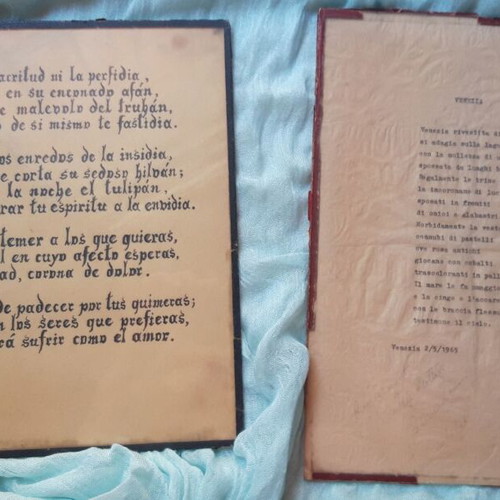 acritud ni la perfidia,
en su enconado afán,
malevolo del truhán,
de si mismo te fastidia.
os enredos de la insidia,
corta su sedoso hilván;
la noche el tulipán,
rar tu espiritu a la envidia.
temer a los que quieras,
en cuyo afecto esperas,
ad, corona de dolor.
de padecer por tus quimeras;
los seres que prefieras,
rá sufrir como el amor.
VENEZIA
Venezia rivestita
si adagia sulla lag
con la mollezza di
sposata da lunghi
Regalmente le trine
la incoronano di
sposati in fremiti
di onici e alabas
Morbidamente la veste
connubi di pastelli
ove rosa antichi
giocano con cobalti
trascoloranti in pal
Il mare la fa
e la cinge e l'acca
con le braccia
testimone il cielo.
Venezia 2/5/1965